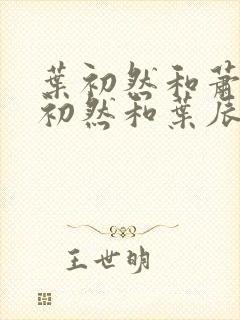 葉初然和蕭
初然和葉辰
王世明